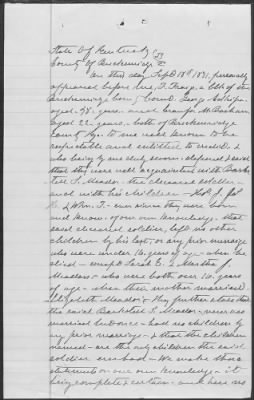 State Of Kentucky
County Of Breckenridge
On this day, Sept 18th 1871, personally
appeared before me, T.
Breckenridge County Court, George
aged 38 years and
aged 22 years, both of Breckenridge
County Ky. to me well known to be
respectable and entitled to credit, &
who being by me duly sworn, deposed & said
that they were well acquainted with
S. Meador the deceased soldier
and with his children
& Wm. T. knew when they were born
and know of our own knowledge, that
said deceased soldier, left no other
children by his last, or any prior marriage
who were under 16 years of age when he
died except Sarah E. & Martha J.
Meador who were both over 16 years
of age when their mother married
Elizabeth Meador & they further state that
the said S. Meador, never was
married but once had no children by
any prior marriage & that the children
named are the only children the said
soldier ever had We make those
statements on our own knowledge it
being complete & certain and have no